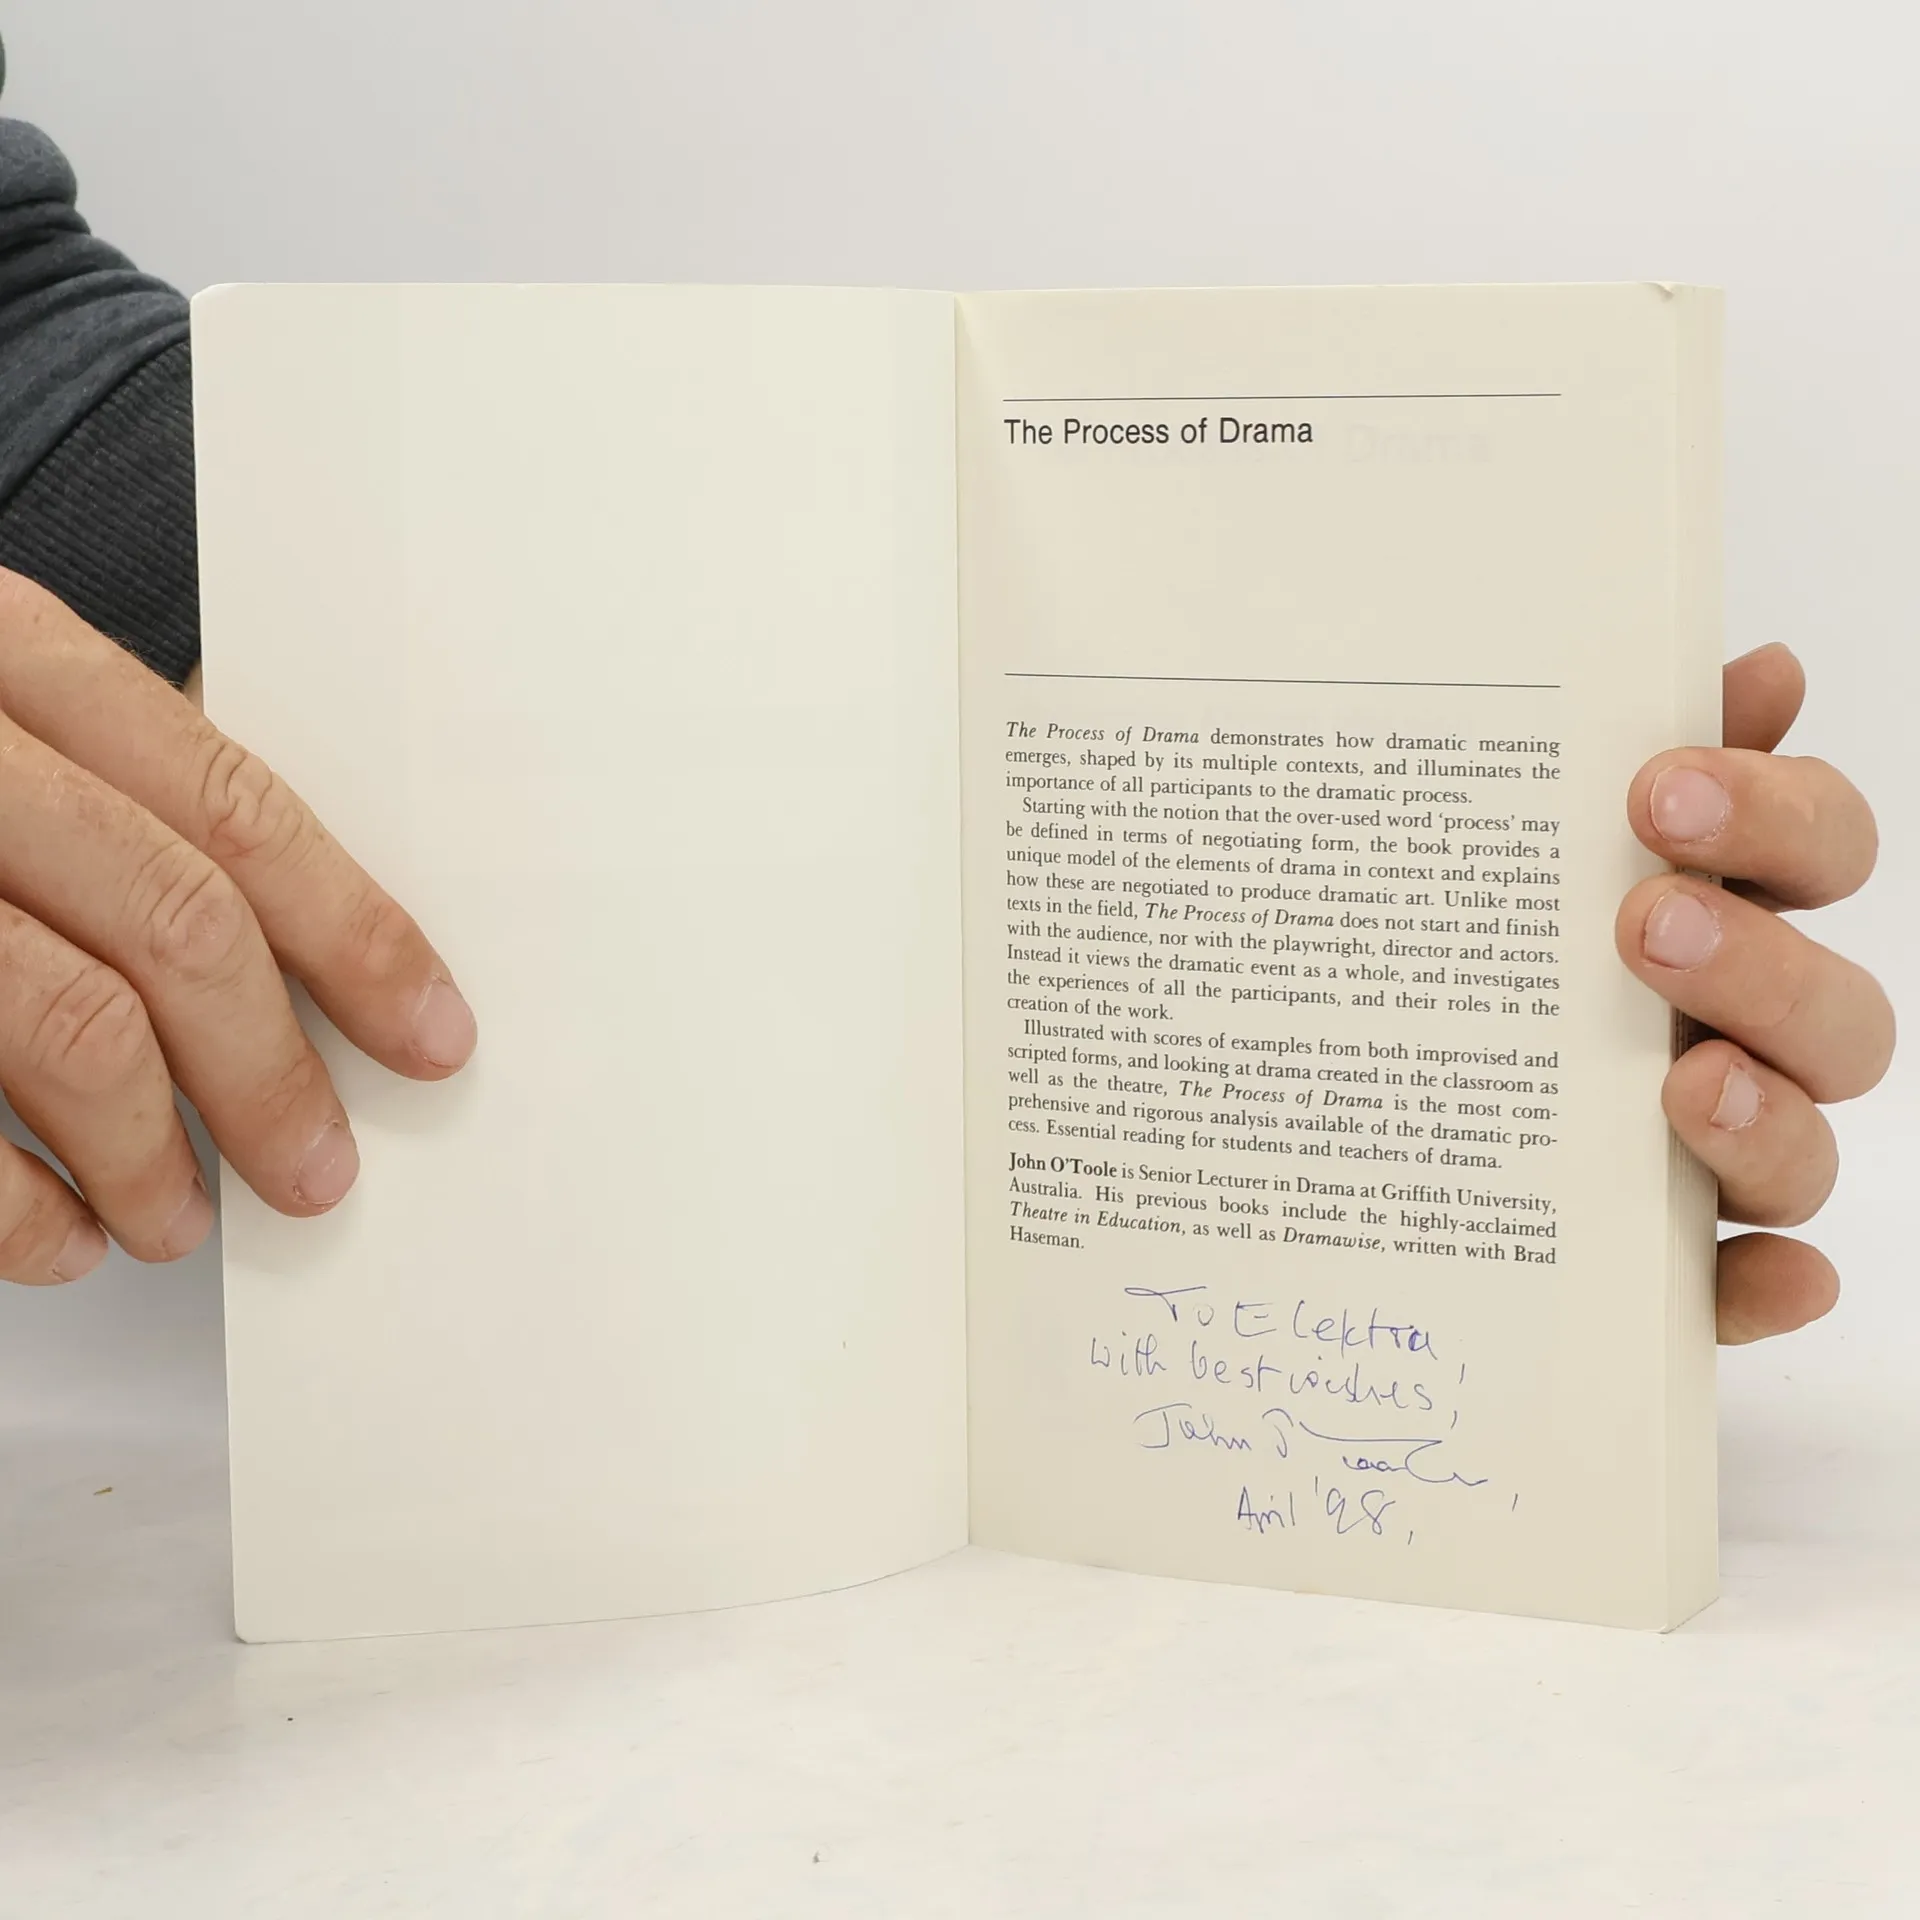 The Process of Drama
The Process of Drama demonstrates how dramatic meaning
emerges, shaped by its multiple contexts, and illuminates the
importance of all participants to the dramatic process.
Starting with the notion that the over-used word ‘process’ may
be defined in terms of negotiating form, the book provides a
unique model of the elements of drama in context and explains
how these are negotiated to produce dramatic art. Unlike most
texts in the field, The Process of Drama does not start and finish
with the audience, nor with the playwright, director and actors.
Instead it views the dramatic event as a whole, and investigates
the experiences of all the participants, and their roles in the
creation of the work.
Illustrated with scores of examples from both improvised and
scripted forms, and looking at drama created in the classroom as
well as the theatre, The Process of Drama is the most com-
prehensive and rigorous analysis available of the dramatic pro-
cess. Essential reading for students and teachers of drama.
John O’Toole is Senior Lecturer in Drama at Griffith University,
Australia. His previous books include the highly-acclaimed
Theatre in Education, as well as Dramawise, written with Brad
Haseman.
To Elektra,
with best wishes,
John
April '98,